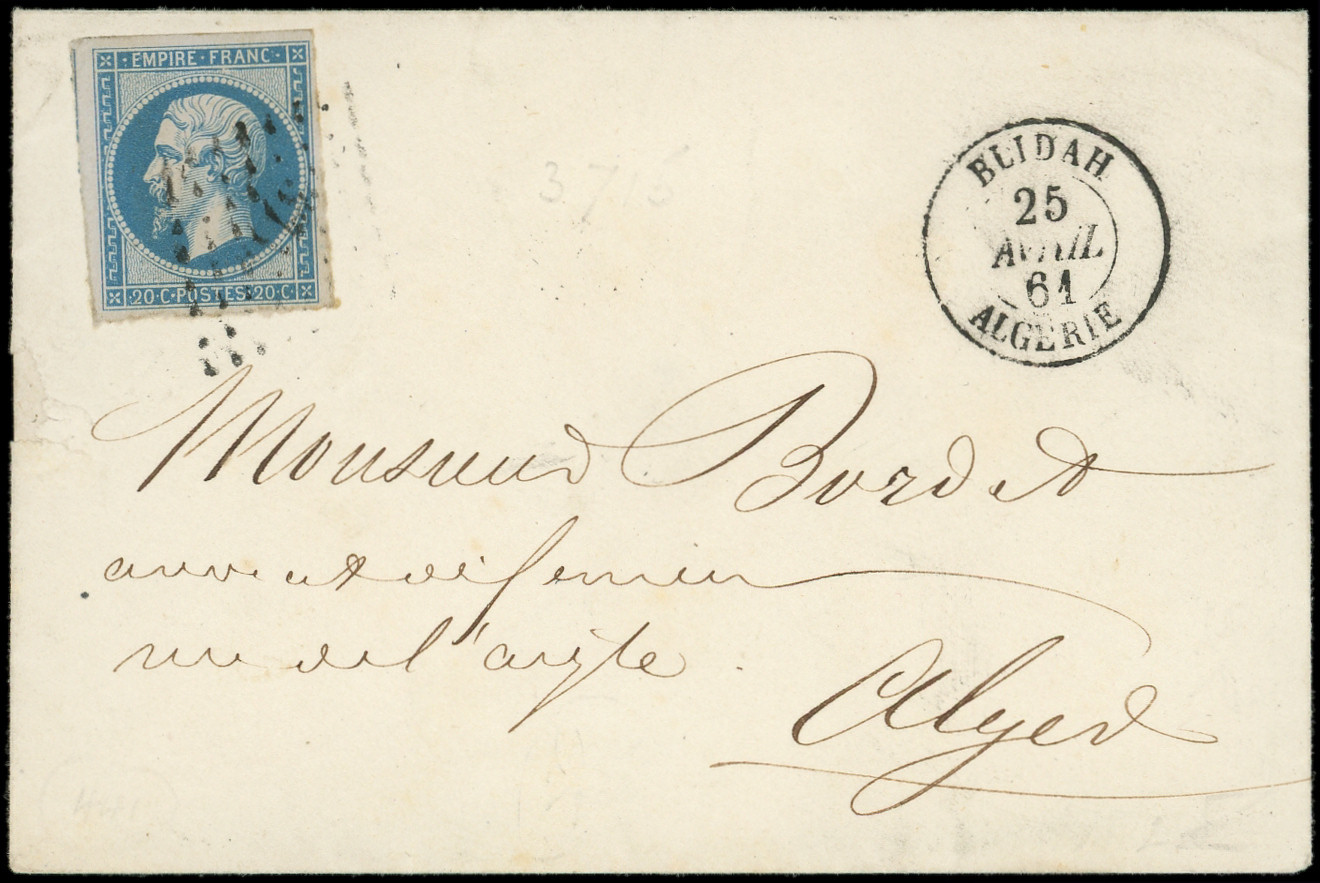 EMPIRE · FRANC ·
20 · C · POSTES · 20 · C ·
BLIDAH
25
AVRIL
61
ALGERIE
3715
Monsieur Bordet
avocat défenseur
rue de l'aigle.
Alger